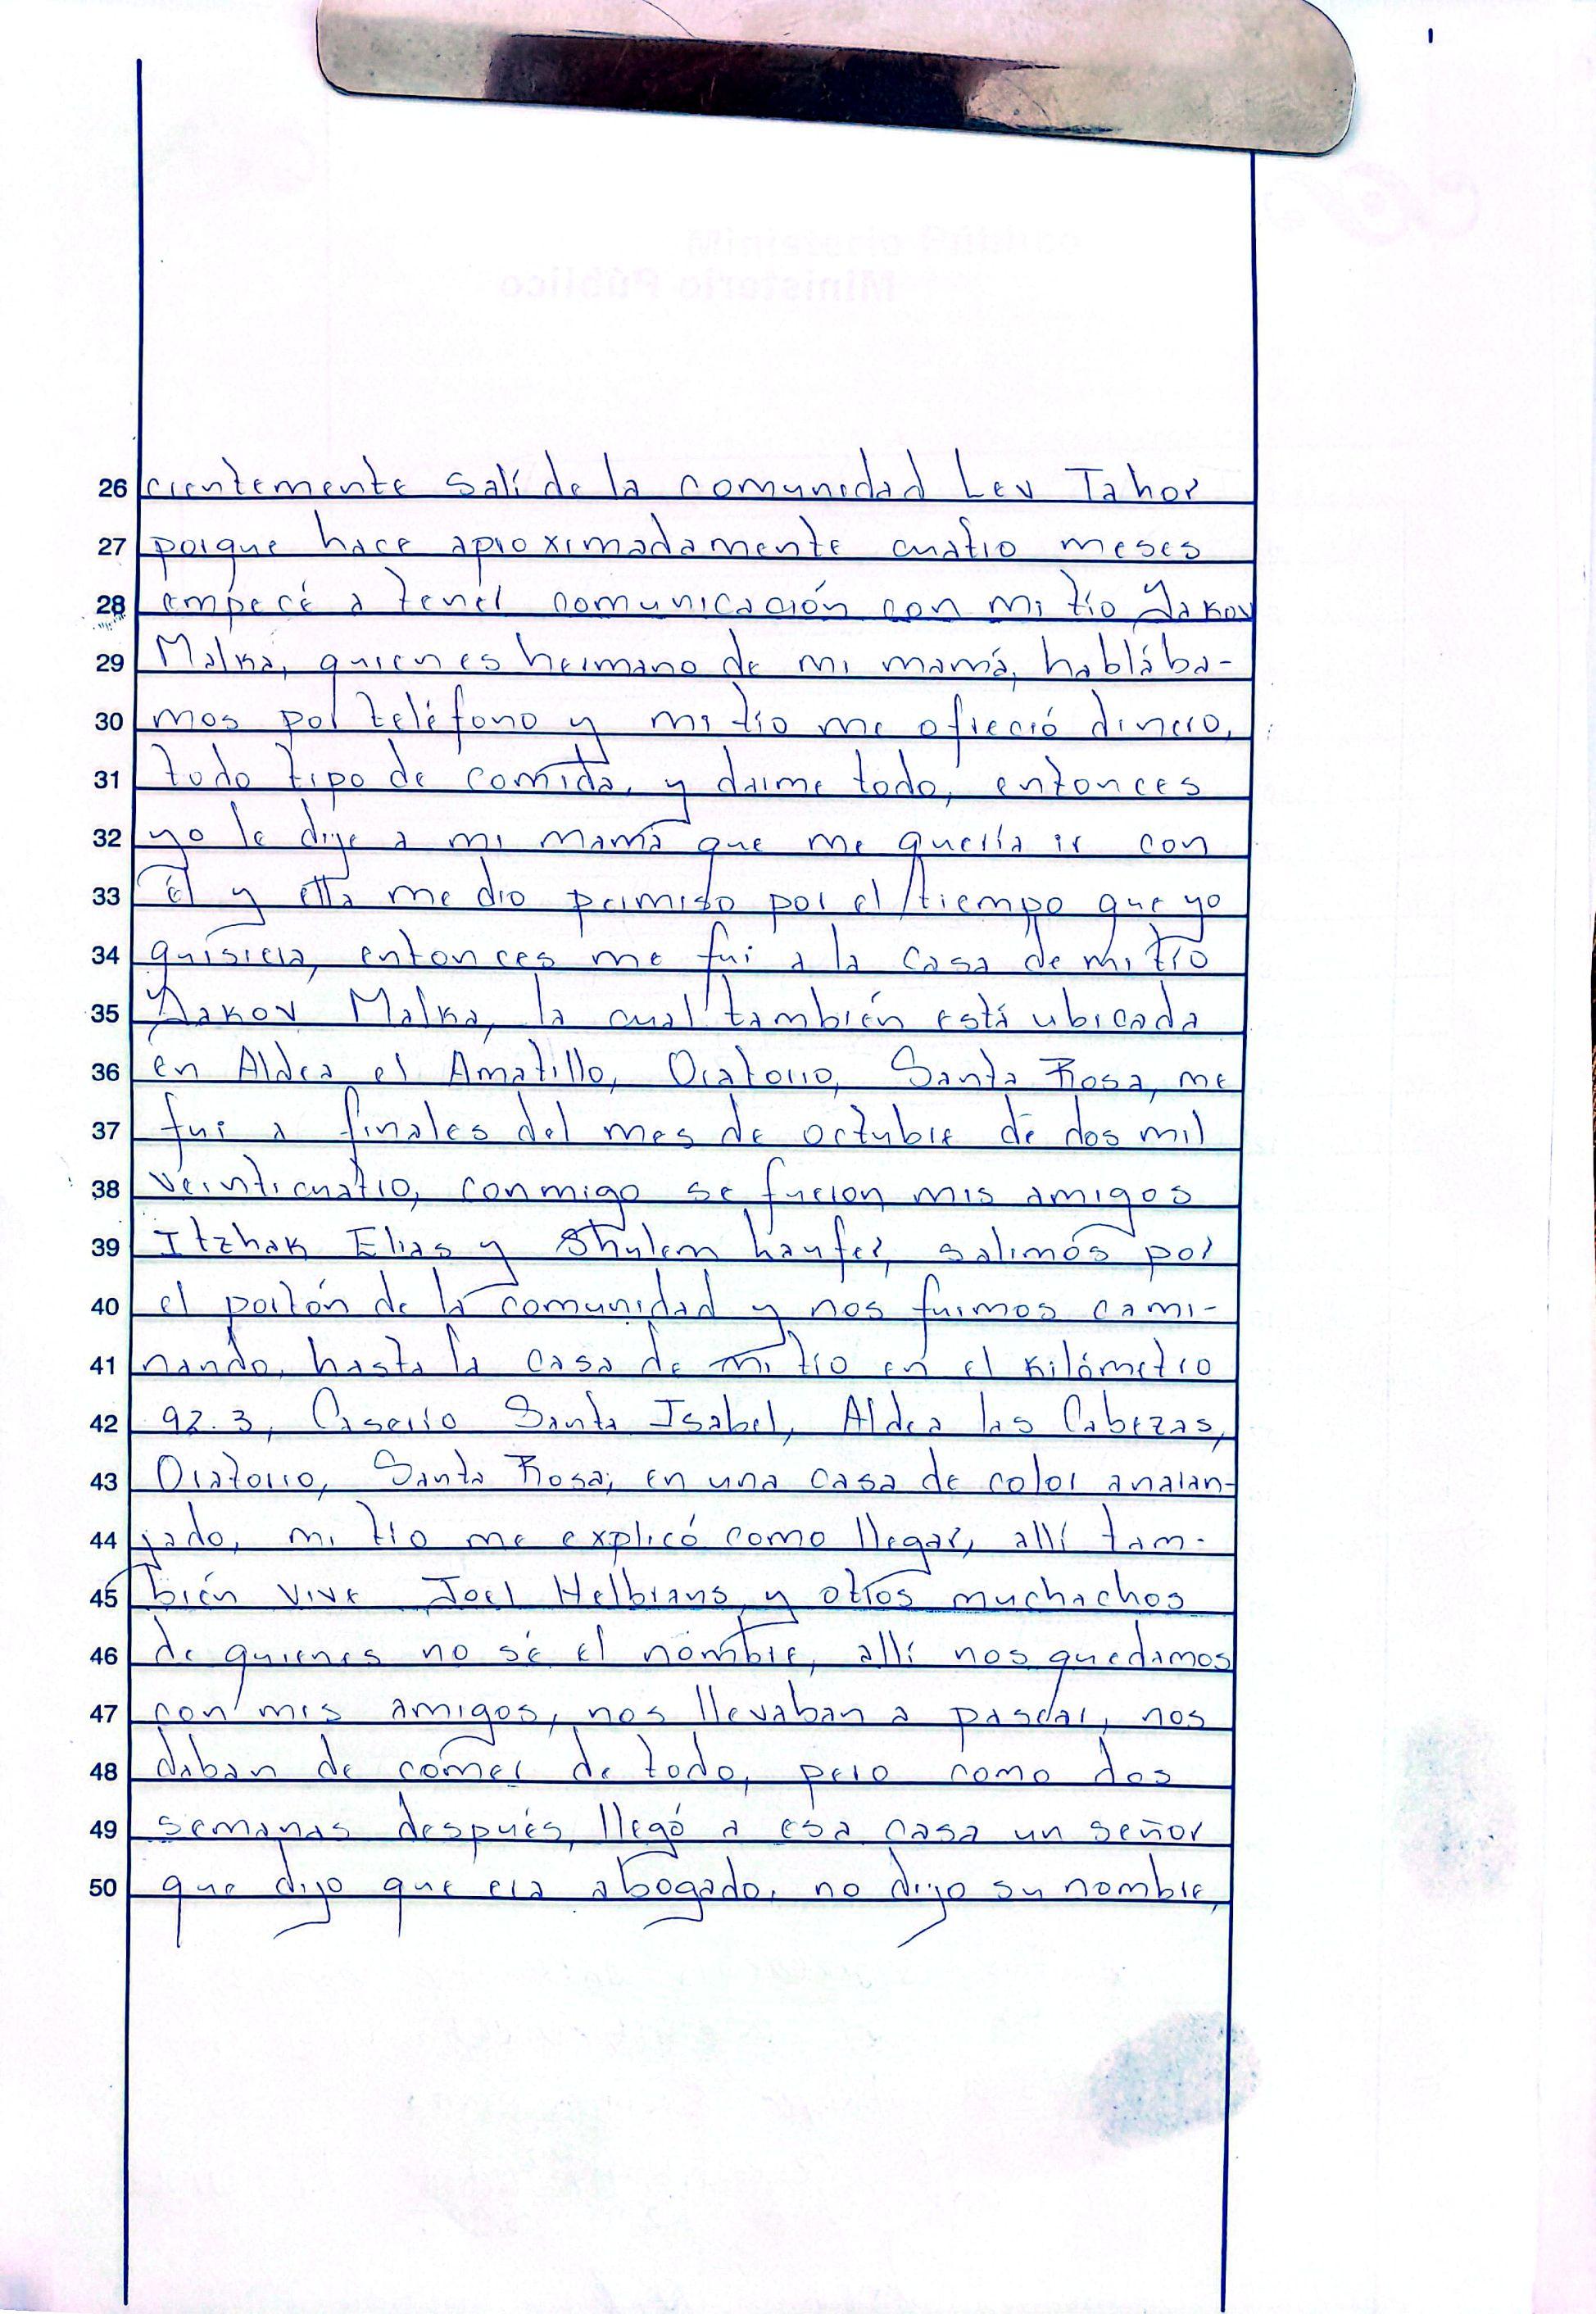 26 cientemente salí de la comunidad Lev Tahor
27 porque hace aproximadamente cuatro meses
28 empecé a tener comunicación con mi tío Yakov
29 Malka, quien es hermano de mi mamá, hablába-
30 mos por teléfono y mi tío me ofreció dinero,
31 todo tipo de comida, y darme todo, entonces
32 yo le dije a mi mamá que me quería ir con
33 él y ella me dio permiso por el tiempo que yo
34 quisiera, entonces me fui a la casa de mi tío
35 Yakov Malka, la cual también está ubicada
36 en Aldea el Amatillo, Oratorio, Santa Rosa, me
37 fui a finales del mes de octubre de dos mil
38 veinticuatro, conmigo se fueron mis amigos
39 Itzhak Elias y Shulem haufer, salimos por
40 el portón de la comunidad y nos fuimos cami-
41 nando, hasta la casa de mi tío en el kilómetro
42 92.3, Caserío Santa Isabel, Aldea las Cabezas,
43 Oratorio, Santa Rosa, en una casa de color anaran-
44 jado, mi tío me explicó como llegar, allí tam-
45 bién vive Joel Helbrans, y otros muchachos
46 de quienes no sé el nombre, allí nos quedamos
47 con mis amigos, nos llevaban a pasear, nos
48 daban de comer de todo, pero como dos
49 semanas después, llegó a esa casa un señor
50 que dijo que era abogado, no dijo su nombre,
Ministerio Público